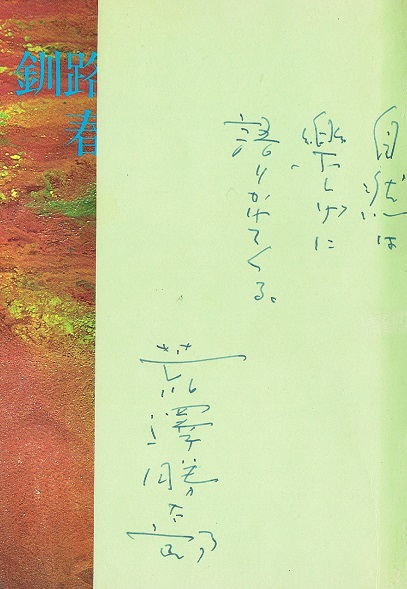 自然は
樂しげに
語りかけてくる。
荒澤勝太郎
釧路
春